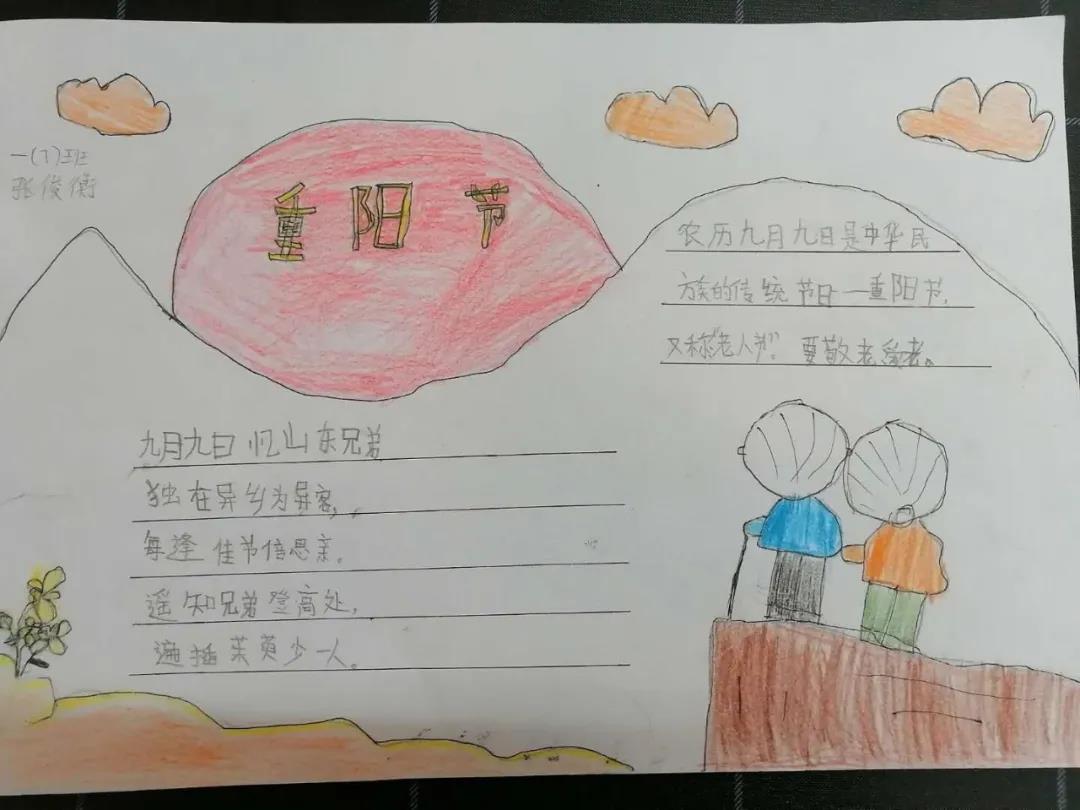 一(7)班
张俊衡
重阳节
农历九月九日是中华民
族的传统节日一重阳节,
又称"老人节"。要敬老爱老。
九月九日忆山东兄弟
独在异乡为异客,
每逢佳节倍思亲。
遥知兄弟登高处,
遍插茱萸少一人。